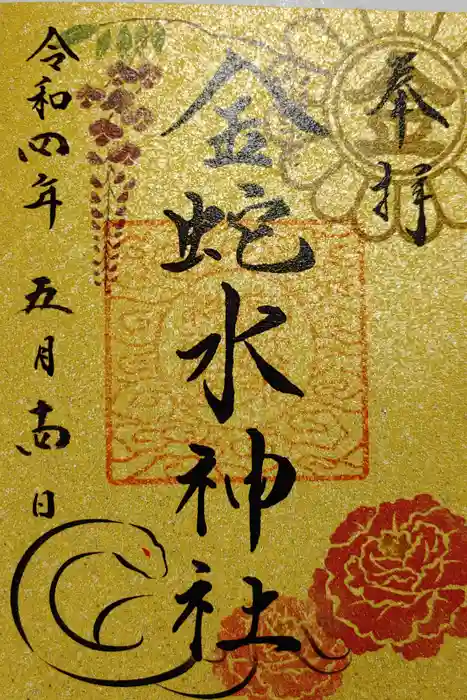 奉拝
金蛇水神社
令和四年 五月十四日